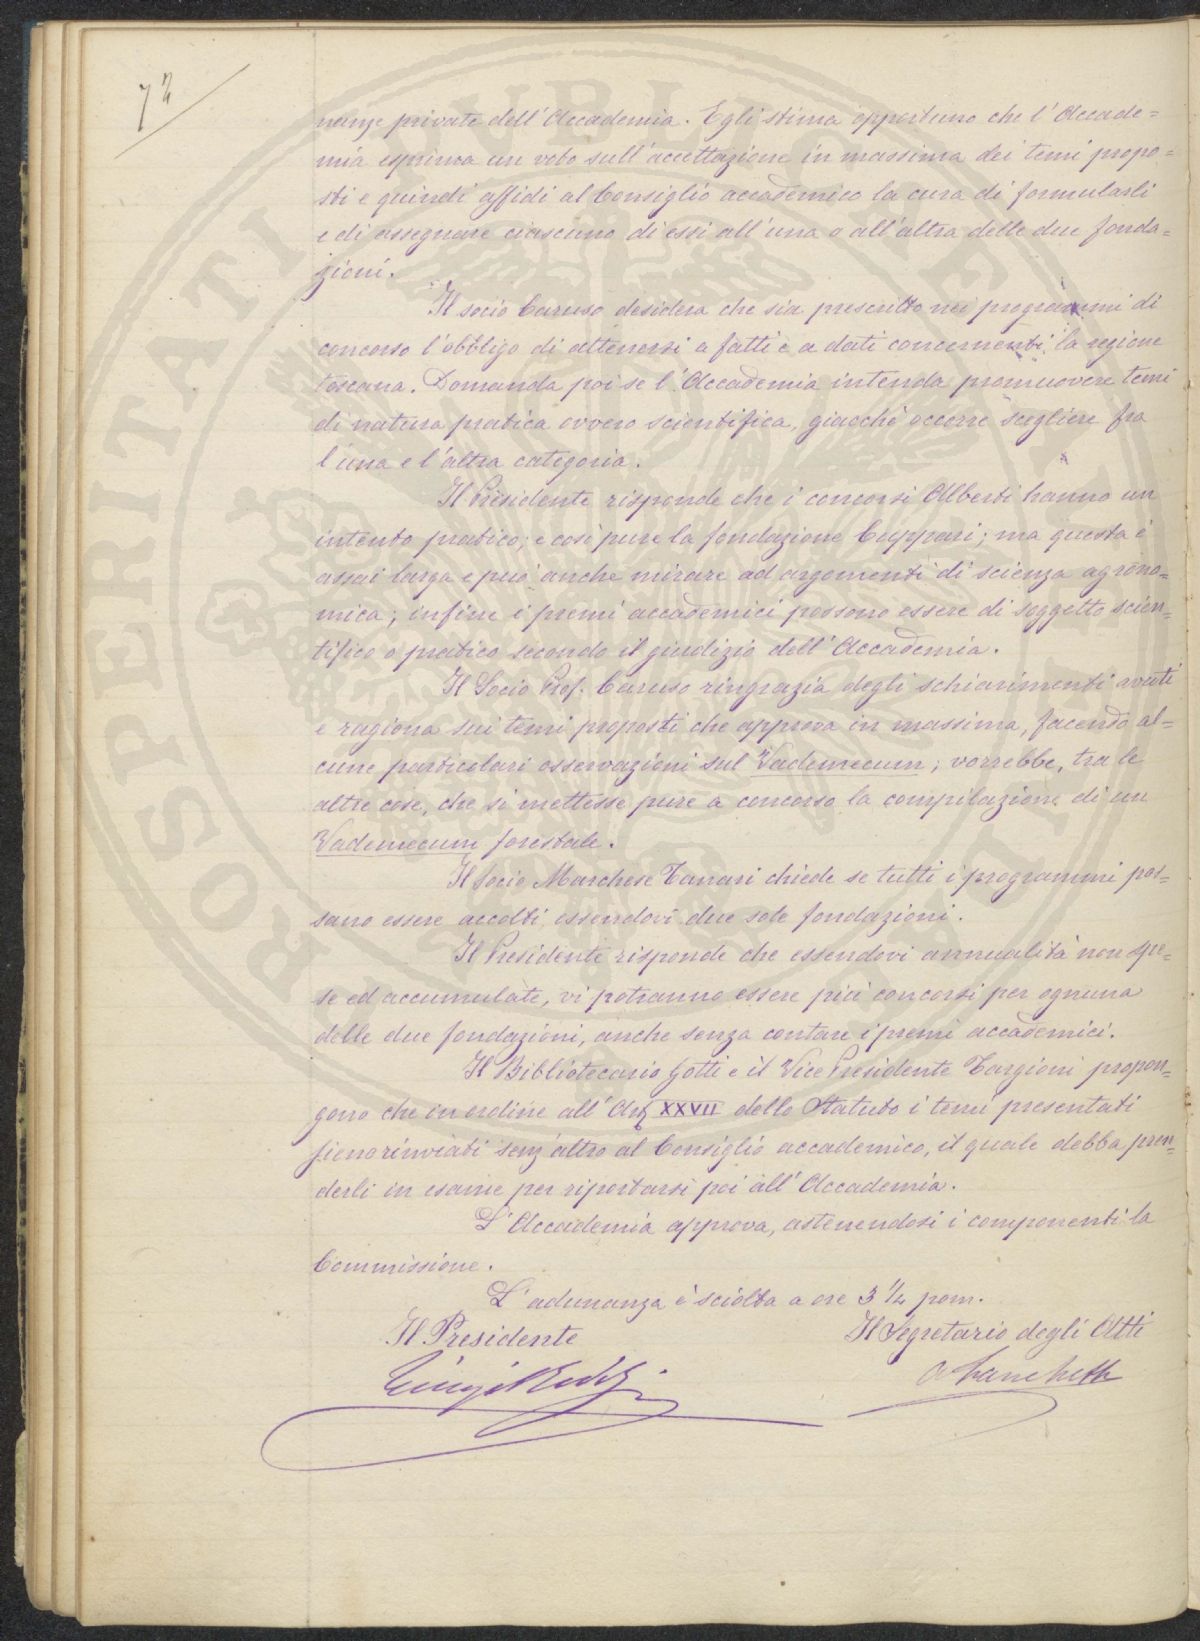 72
nanze private dell'Accademia. Egli stima opportuno che l'Accade=
mia esprima un voto sull'accettazione in massima dei temi propo=
sti e quindi affidi al Consiglio accademico la cura di formularli
e di assegnare ciascuno di essi all'una o all'altra delle due fonda=
zioni.
Il socio Caruso desidera che sia prescritto nei programmi di
concorso l'obbligo di attenersi a fatti e a dati concernenti la regione
toscana. Domanda poi se l'Accademia intenda promuovere temi
di natura pratica ovvero scientifica, giacchè occorre scegliere fra
l'una e l'altra categoria.
Il Presidente risponde che i concorsi Alberti hanno un
intento pratico; e così pure la fondazione Cuppari; ma questa è
assai larga e può anche mirare ad argomenti di scienza agrono=
mica; infine i premi accademici possono essere di soggetto scien=
tifico o pratico secondo il giudizio dell'Accademia.
Il Socio Prof. Caruso ringrazia degli schiarimenti avuti
e ragiona sui temi proposti che approva in massima, facendo al=
cune particolari osservazioni sul Vademecum; vorrebbe, tra le
altre cose, che si mettesse pure a concorso la compilazione di un
Vademecum forestale.
Il Socio Marchese Tanari chiede se tutti i programmi pos=
sano essere accolti essendovi due sole fondazioni.
Il Presidente risponde che essendovi annualità non spe=
se ed accumulate, vi potranno essere più concorsi per ognuna
delle due fondazioni, anche senza contare i premi accademici.
Il Bibliotecario Gotti e il Vice Presidente Targioni propon=
gono che in ordine all'Art XXVII dello Statuto i temi presentati
sieno rinviati senz'altro al Consiglio accademico, il quale debba pren=
derli in esame per riportarsi poi all'Accademia.
L'Accademia approva, astenendosi i componenti la
Commissione.
L'adunanza è sciolta a ore 3 1/4 pom.
Il Presidente
Il Segretario degli Atti
Luigi Ridolfi
PROSPERITATI PUBLICAE